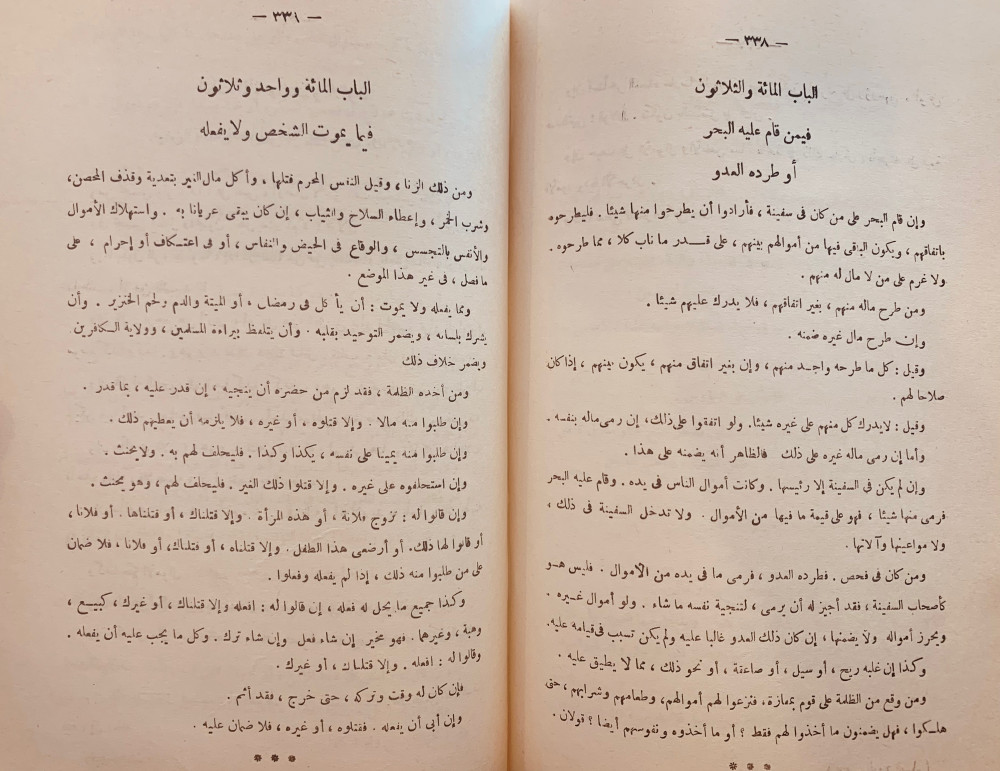 — ٣٣٨ —
الباب المائة والثلاثون
فيمن قام عليه البحر
أو طرده العدو
وإن قام البحر على من كان فى سفينة ، فأرادوا أن يطرحوا منها شيئا . فليطرحوه
باتفاقهم ، ويكون الباقى فيها من أموالهم بينهم ، على قــدر ما ناب كلا ، مما طرحوه .
ولا غرم على من لا مال له منهم .
ومن طرح ماله منهم ، بغير اتفاقهم ، فلا يدرك عليهم شيئا .
وإن طرح مال غيره ضمنه .
وقيل : كل ما طرحه واحد منهم ، وإن بغير اتفاق منهم ، يكون بينهم ، إذا كان
صلاحا لهم .
وقيل : لا يدرك كل منهم على غيره شيئا . ولو اتفقوا على ذلك ، إن رمى ماله بنفسه .
وأما إن رمى ماله غيره على ذلك فالظاهر أنه يضمنه على هذا .
وإن لم يكن فى السفينة إلا رئيسها . وكانت أموال الناس فى يده . وقام عليه البحر
فرمى منها شيئا ، فهو على قيمة ما فيها من الأموال . ولا تدخل السفينة فى ذلك ،
ولا مواعينها وآلاتها .
ومن كان فى فحص . فطرده العدو ، فرمى ما فى يده من الأموال . فليس هــو
كأصحاب السفينة ، فقد أجيز له أن يرمى ، لتنجية نفسه ما شاء . ولو أموال غيره .
ويحرز أمواله ولا يضمنها ، إن كان ذلك العدو غالبا عليه ولم يكن تسبب فى قيامه عليه .
وكذا إن غلبه ريح ، أو سيل ، أو صاعقة ، أو نحو ذلك ، مما لا يطيق عليه .
ومن وقع من الظلمة على قوم بمفازة ، فنزعوا لهم أموالهم ، وطعامهم وشرابهم ، حتى
هلـكوا ، فهل يضمنون ما أخذوا لهم فقط ؟ أو ما أخذوه ونفوسهم أيضا ؟ قولان .
* * *
— ٣٣٩ —
الباب المائة وواحد وثلاثون
فيما يموت الشخص ولا يفعله
ومن ذلك الزنا ، وقيل النفس المحرم قتلها ، وأكل مال الغير بتعدية وقذف المحصن ،
وشرب الخمر ، وإعطاء السلاح والثياب ، إن كان يبقى عريانا به . واستهلاك الأموال
والأنفس بالتجسس ، والوقاع فى الحيض والنفاس ، أو فى اعتـكاف أو إحرام ، على
ما فصل ، فى غير هذا الموضع .
ومما يفعله ولا يموت : أن يأكل فى رمضان ، أو الميتة والدم ولحم الخنزير . وأن
يشرك بلسانه ، ويضمر التوحيد بقلبه . وأن يتلفظ ببراءة المسلمين ، وولاية الـكافرين
ويضمر خلاف ذلك
ومن أخذه الظلمة ، فقد لزم من حضره أن ينجيه ، إن قدر عليه ، بما قدر .
وإن طلبوا منه مالا . وإلا قتلوه ، أو غيره ، فلا يلزمه أن يعطيهم ذلك .
وإن طلبوا منه يمينا على نفسه ، بكذا وكذا . فليحلف لهم به . ولا يحنث .
وإن استحلفوه على غيره . وإلا قتلوا ذلك الغير . فليحلف لهم ، وهو يحنث .
وإن قالوا له : تزوج فلانة ، أو هذه المرأة . وإلا قتلناك ، أو قتلناها . أو فلانا ،
أو قالوا لها ذلك . أو أرضعى هذا الطفل . وإلا قتلناه ، أو قتلناك ، أو فلانا ، فلا ضمان
على من طلبوا منه ذلك ، إذا لم يفعله وفعلوا .
وكذا جميع ما يحل له فعله ، إن قالوا له : افعله وإلا قتلناك ، أو غيرك ، كبيــع ،
وهبة ، وغيرهما . فهو مخير إن شاء فعل وإن شاء ترك . وكل ما يجب عليه أن يفعله .
وقالوا له : افعله . وإلا قتلناك ، أو غيرك .
فإن كان له وقت وتركه ، حتى خرج ، فقد أثم .
وإن أبى أن يفعله . فقتلوه ، أو غيره ، فلا ضمان عليه .
* * *